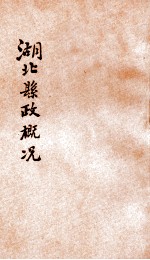 湖北縣政概况